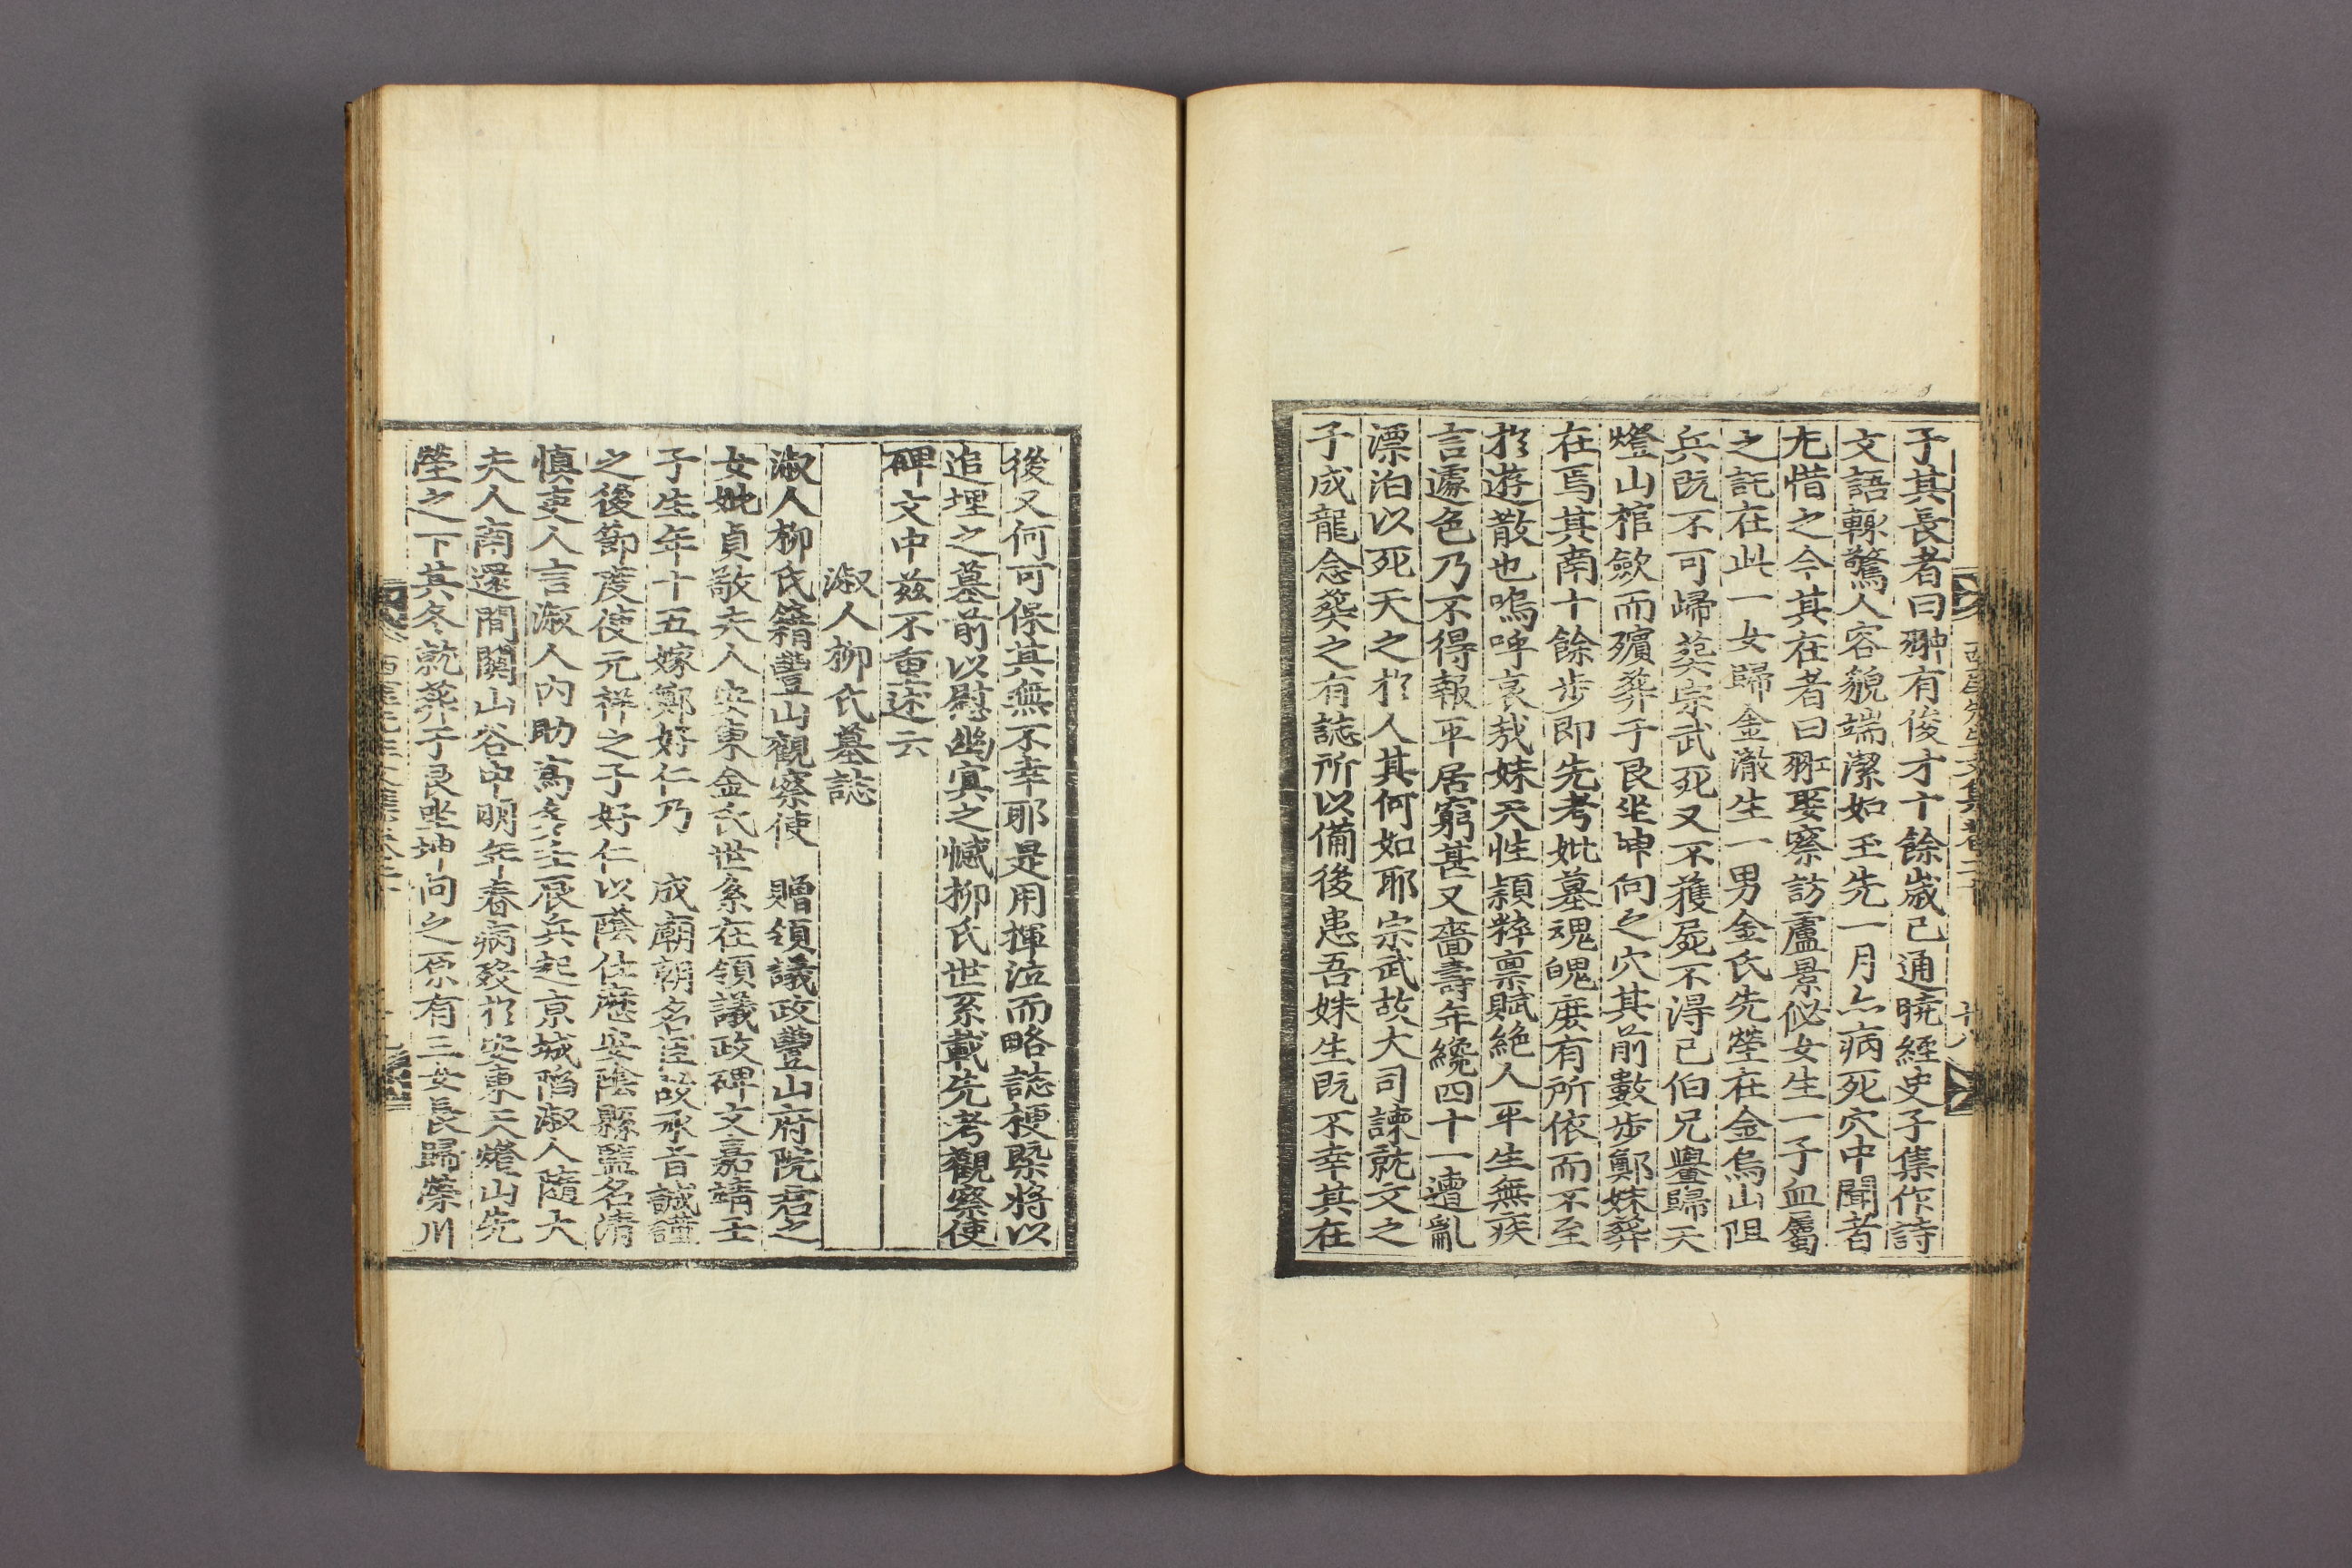 子其長者曰翀有俊才十餘歲已通曉經史子集作詩
文語輒驚人容貌端潔如玉先一月亦病死穴中聞者
尤惜之今其在者曰翃娶察訪盧景佖女生一子血屬
之託在此一女歸金澈生一男金氏先塋在金烏山阻
兵旣不可歸葬宗武死又不獲屍不得已伯兄轝歸天
燈山棺歛而殯葬于艮坐坤向之穴其前數步鄭妹葬
在焉其南十餘步卽先考妣墓魂魄庶有所依而不至
於遊散也嗚呼哀哉妹天性穎粹禀賦絶人平生無疾
言遽色乃不得報平居窮甚又嗇壽年纔四十一遭亂
漂泊以死天之於人其何如耶宗武故大司諫就文之
子成龍念葬之有誌所以備後患吾妹生旣不幸其在
西厓先生文集卷二十
十八
後又何可保其無不幸耶是用揮泣而略誌梗槩將以
追埋之墓前以慰幽冥之憾柳氏世系載先考觀察使
碑文中兹不重述云
淑人柳氏墓誌
淑人柳氏籍豐山觀察使 贈領議政豐山府院君之
女妣貞敬夫人安東金氏世系在領議政碑文嘉靖壬
子生年十五嫁鄭好仁乃 成廟朝名臣故承旨誠謹
之後節度使元祥之子好仁以蔭仕歷安陰縣監名淸
愼吏人言淑人內助爲多壬辰兵起京城陷淑人隨大
夫人南還間關山谷中明年春病歿於安東天燈山先
塋之下其冬就葬于艮坐坤向之原有三女長歸榮川
西厓先生文集卷二十